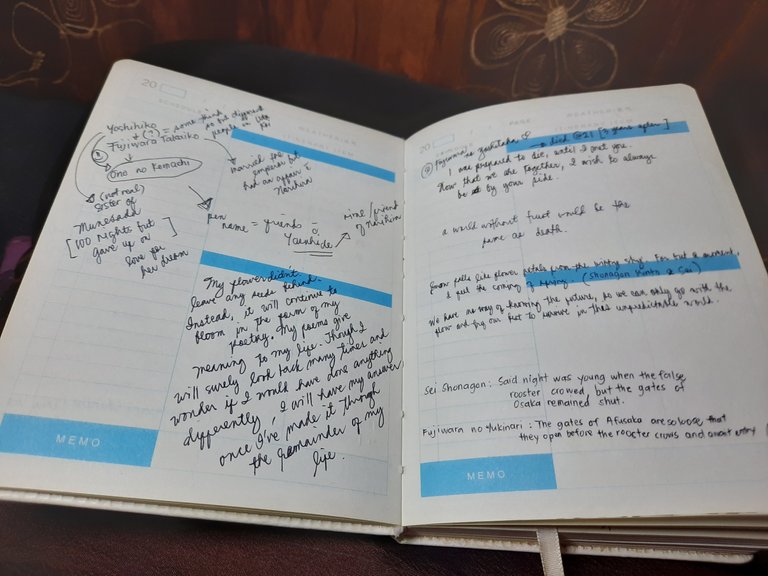 20
Yoshihiko
(?) = some think
people in
Fujiwara Takaiko
Ono no Komachi
married the
emperor but
had an affair
Narihira
(not real)
sister of
Munesada
[100 nights but
gave up on
love for
her dream
pen
name = friends
Yasuhide
rival/friend
of Narihira
My flower didn't
leave any seeds behind.
Instead, it will continue to
bloom in the form of my
poetry. My poems give
meaning to my life. Though I
will surely look back many times and
wonder if I would have done anything
differently, I will have my answer
once I've made it through
the remainder of my
life.
MEMO
20
Fujiwara no Yoshitaka → died @21 [3 years after]
I was prepared to die, until I met you.
Now that we are together, I wish to always
be by your side.
a world without trust would be the
same as death.
Snow falls like flower petals from the wintry sky. For but a moment,
I feel the coming of spring. (Shonagon hints @ Sei)
We have no way of knowing the future, so we can only go with the
flow and try our best to survive in this unpredictable world.
Sei Shonagon: Said night was young when the false
rooster crowed, but the gates of
Osaka remained shut.
Fujiwara no Yukinari: The gates of Afusaka are so loose that
they open before the rooster crows and await entry
MEMO